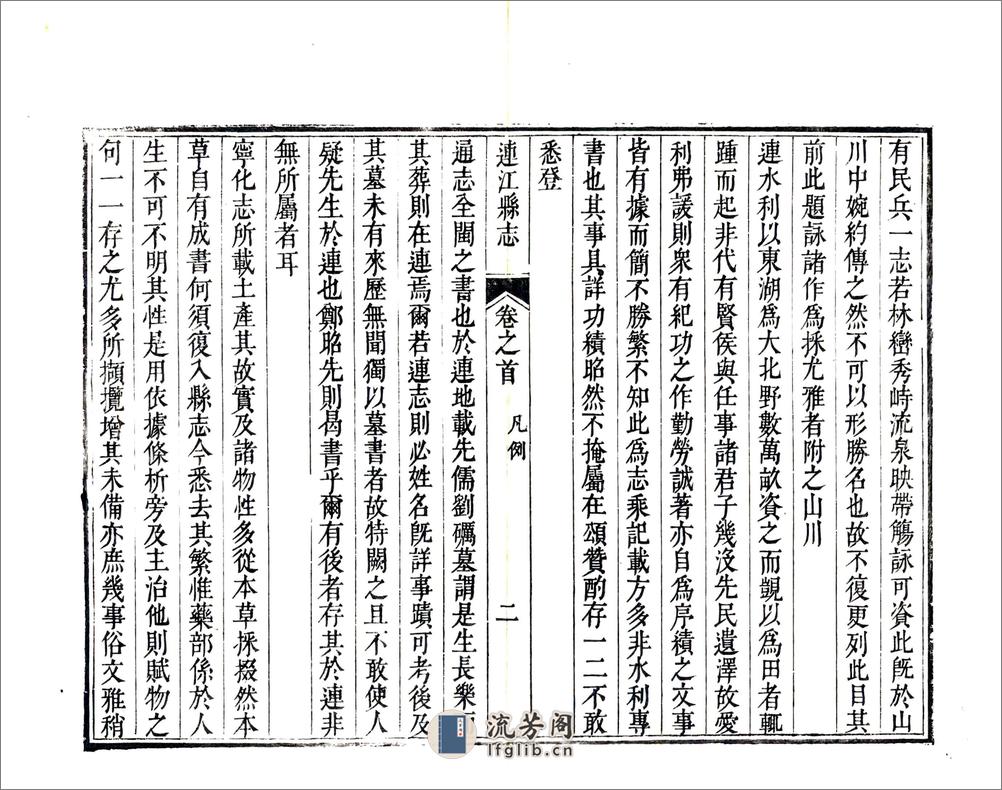 有民兵一志若林巒秀峙流泉映帶觴詠可資此旣於山
川中婉約傳之然不可以形勝名也故不復更列此目其
前此題詠諸作爲採尤雅者附之山川
連水利以東湖爲大北野數萬畝資之而覬以爲田者輒
踵而起非代有賢侯與任事諸君子幾沒先民遺澤故爰
利弗諼則衆有紀功之作勤勞誠著亦自爲序績之文事
皆有據而簡不勝繁不知此爲志乘記載方多非水利專
書也其事具詳功績昭然不掩屬在頌贊酌存一二不敢
悉登
連江縣志
卷之首
凡例
二
通志全閩之書也於連地載先儒劉礪墓謂是生長樂而
其葬則在連焉爾若連志則必姓名旣詳事蹟可考後及
其墓未有來歷無聞獨以墓書者故特闕之且不敢使人
疑先生於連也鄭昭先則曷書乎爾有後者存其於連非
無所屬者耳
寧化志所載土產其故實及諸物性多從本草採掇然本
草自有成書何須復入縣志今悉去其繁惟藥部係於人
生不可不明其性是用依據條析旁及主治他則賦物之
何一一存之尤多所擷攬增其未備亦庶幾事俗文雅稍
流芳閣
lfglib.cn